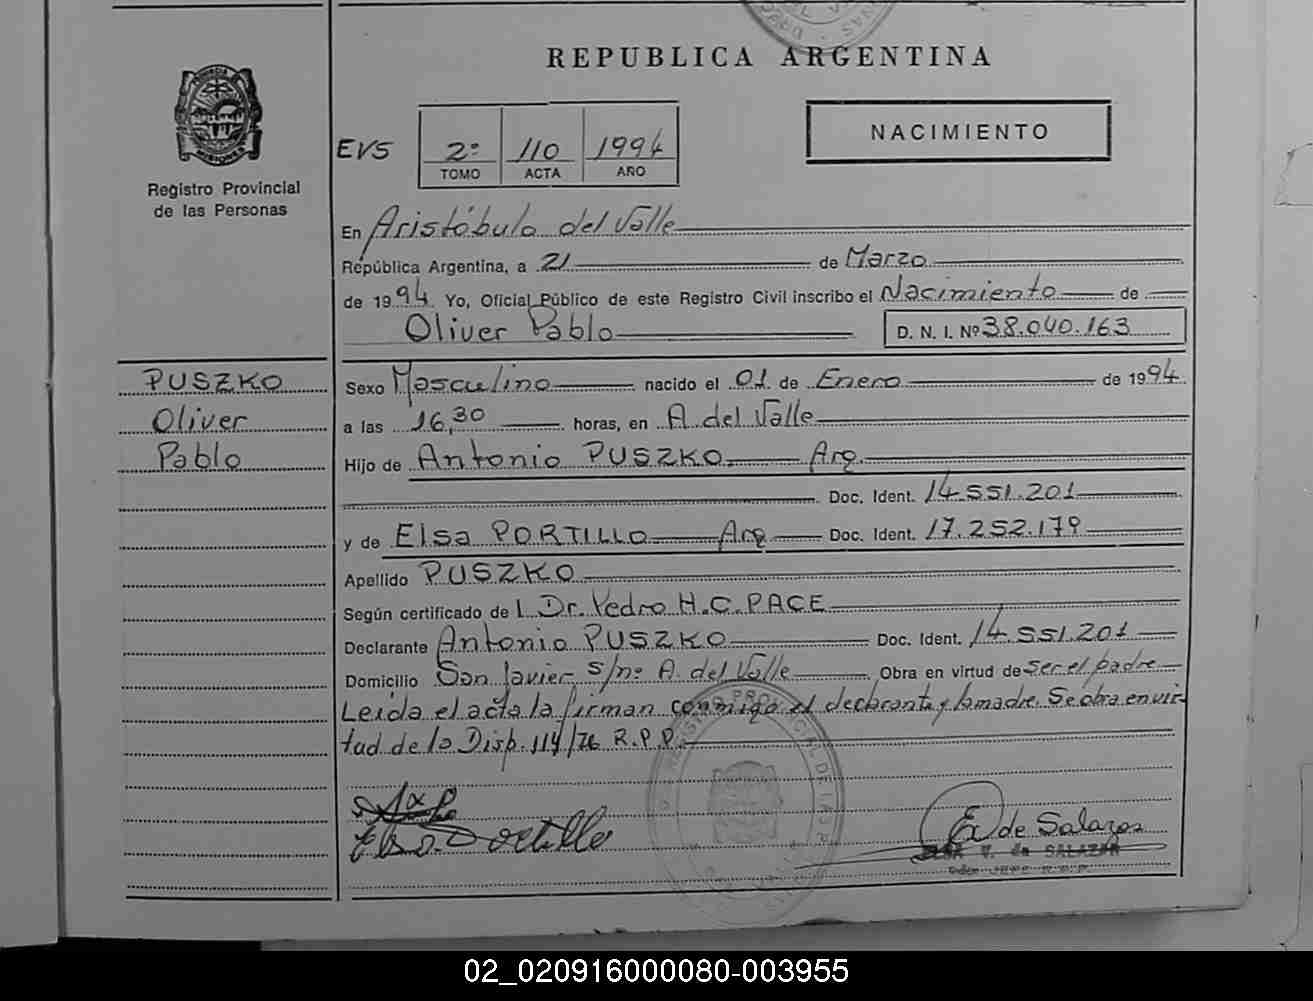 REPUBLICA ARGENTINA
PROVINCIA DE
MISIONES
Registro Provincial
de las Personas
NACIMIENTO
EVS
2º 110 1994
TOMO ACTA AÑO
En Aristóbulo del Valle
República Argentina, a 21 de Marzo
de 1994 Yo, Oficial Público de este Registro Civil inscribo el Nacimiento de
Oliver Pablo D. N. I. Nº 38.040.163
PUSZKO
Oliver
Pablo
Sexo Masculino nacido el 01 de Enero de 1994
a las 16,30 horas, en A. del Valle
Hijo de Antonio PUSZKO Arg.
Doc. Ident. 14.551.201
y de Elsa PORTILLO Arg Doc. Ident. 17.252.179
Apellido PUSZKO
Según certificado del Dr. Pedro H.C. PACE
Declarante Antonio PUSZKO Doc. Ident. 14.551.201
Domicilio San Javier s/nº A. del Valle Obra en virtud de ser el padre
Leída el acta la firman conmigo el declarante y la madre. Se obra en vir-
tud de la Disp. 114/76 R.P.P.
Elsa Portillo
E de Salazar
ELSA V. de SALAZAR
02_020916000080-003955